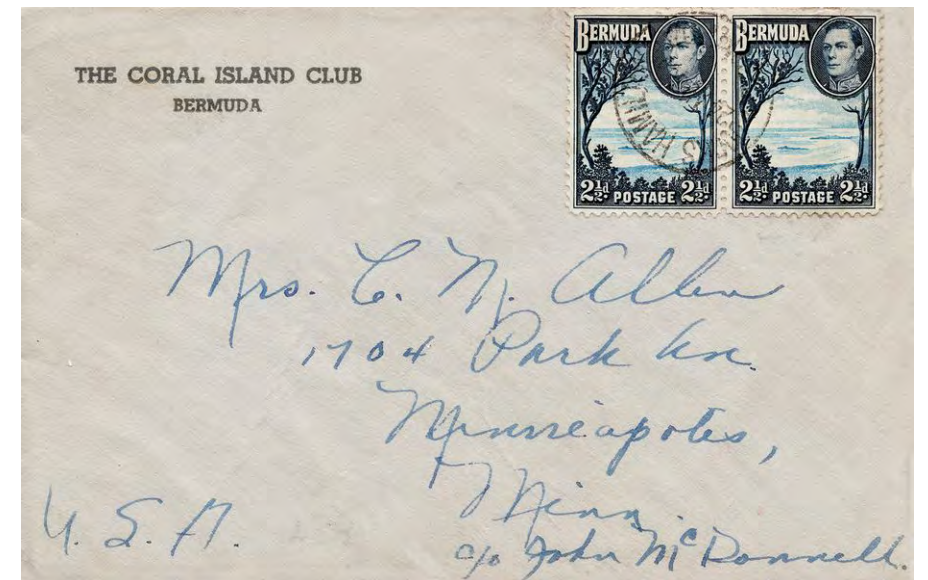 THE CORAL ISLAND CLUB
BERMUDA
BERMUDA
2½d. POSTAGE 2½d.
BERMUDA
2½d. POSTAGE 2½d.
HAM
Mrs. C. N. Allen
1704 Park Ave.
Minneapolis,
Minn.
U. S. A.
c/o John McDonnell.